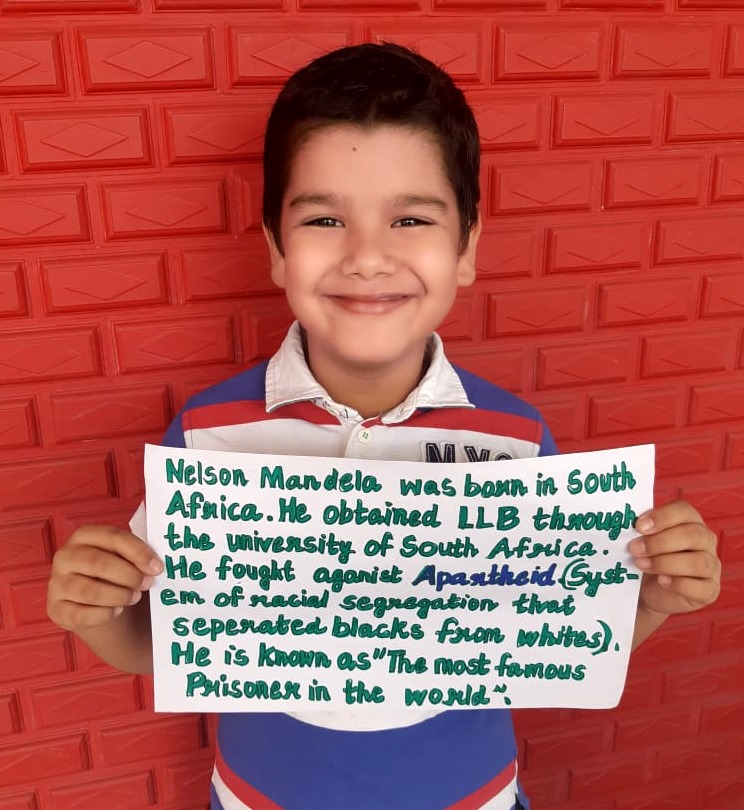 NYC
Nelson Mandela was born in South
Africa. He obtained LLB through
the university of South Africa.
He fought aganist Apartheid.(Syst-
em of racial segregation that
seperated blacks from whites).
He is known as "The most famous
Prisoner in the world".